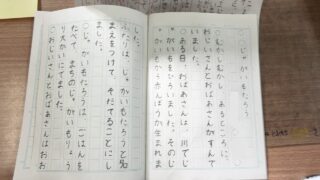 ○じゃがいもたろう
○むかしむかし、あるところに、
おじいさんとおばあさんがすんで
いました。
○ある日、おばあさんは、川でじ
ゃがいもをひろいました。そのじ
ゃがいもから赤んぼうが生まれま
した。
ふたりは、じゃがいもたろうと名
まえをつけて、そだてることにし
ました。
○じゃがいもたろうは、ごはんを
たべて、まちのじゃがいもりょう
り大かいにでました。
○おじいさんとおばあさんはおお